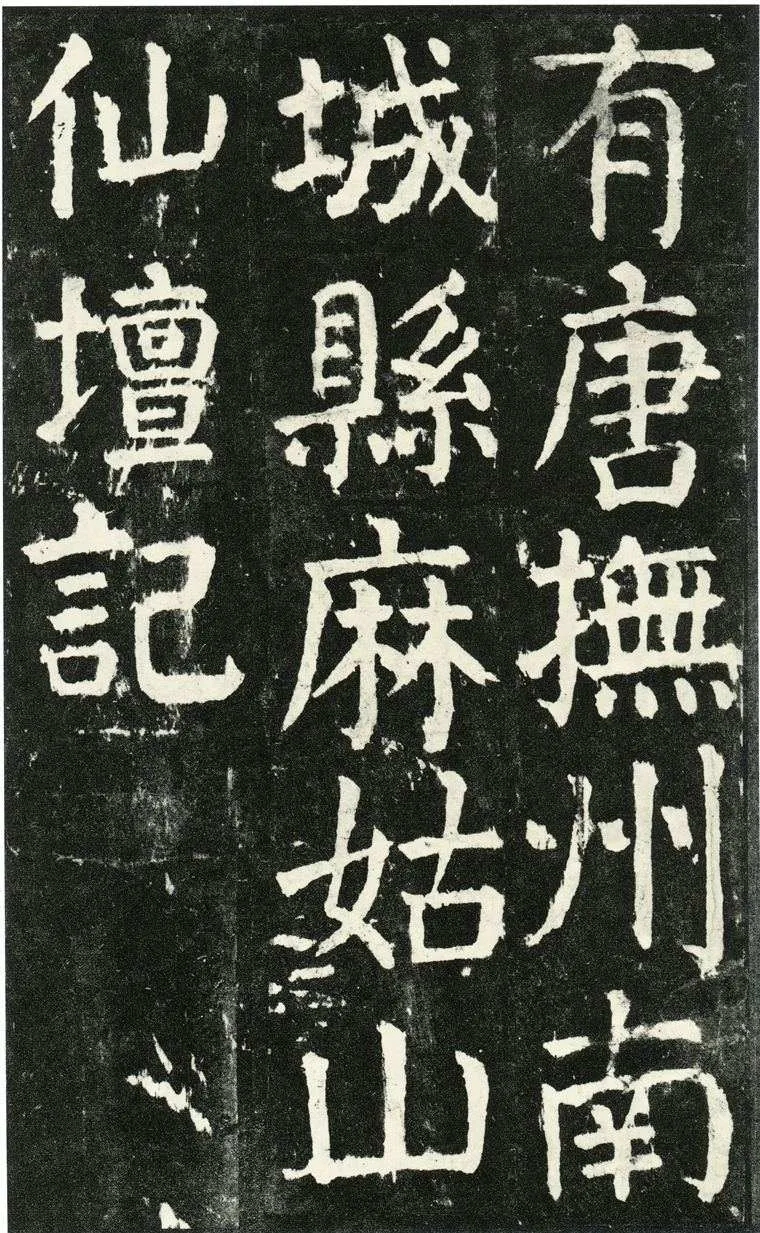 有唐撫州南
城縣麻姑山
仙壇記